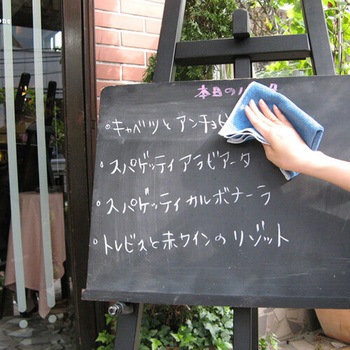 本日の
°キャベツとアンチョビ
°スパゲッティアラビアータ
°スパゲッティカルボナーラ
°トレビスと赤ワインのリゾット